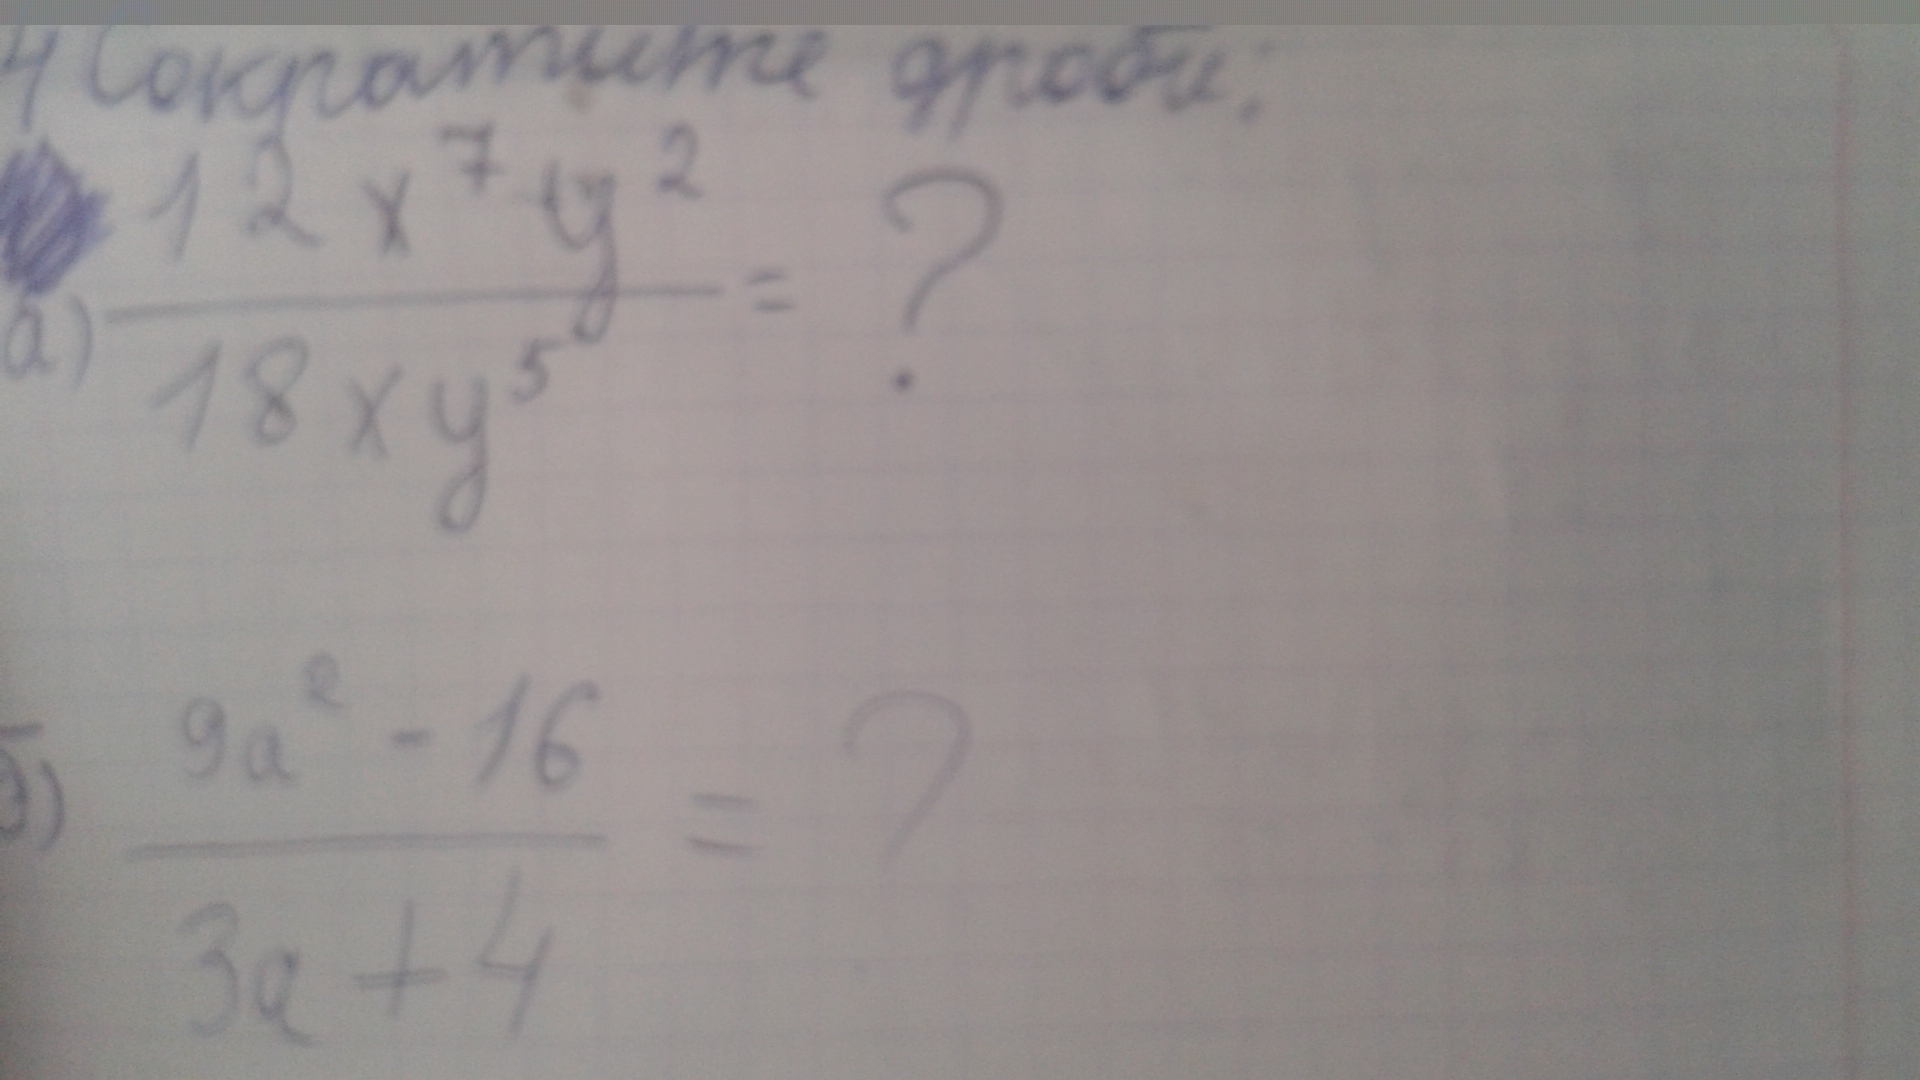 4 Сократите дроби:
12x⁷y²
а) ――― = ?
18xy⁵
9a² - 16
б) ――― = ?
3a + 4